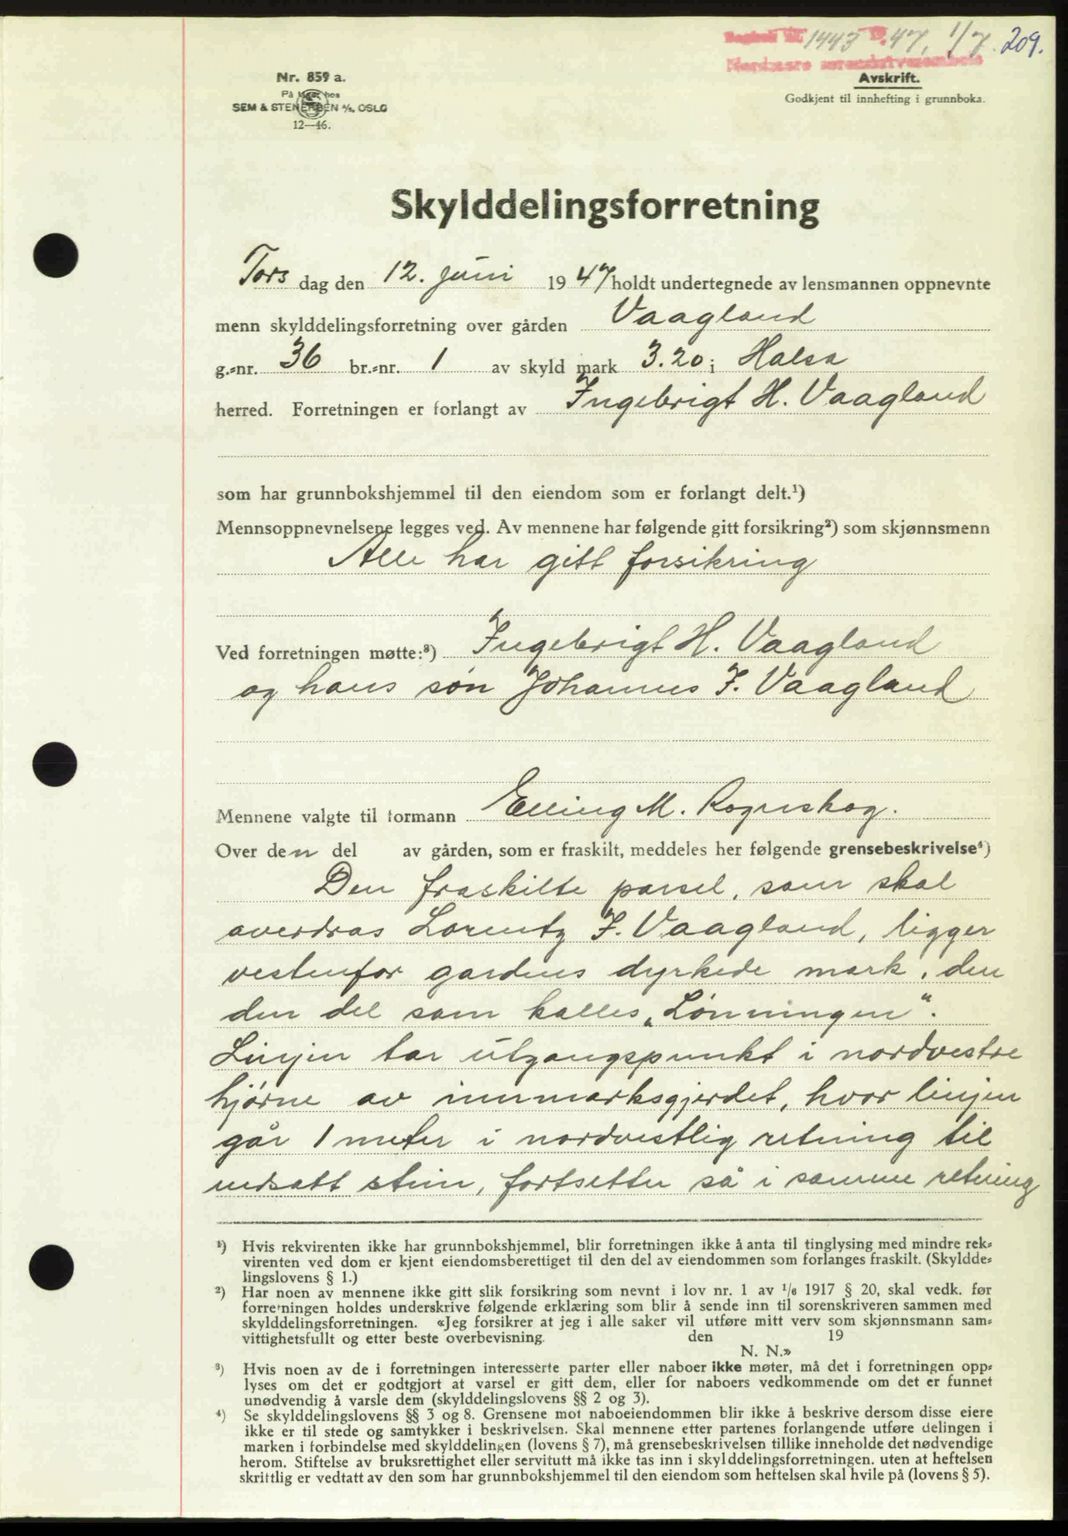 Dagbok nr. 1443 19.47, 1/7 209.
Nordmøre sorenskriverembete
Avskrift.
Godkjent til innhefting i grunnboka.
Nr. 859 a.
På lager hos
SEM & STENERSEN A/S, OSLO
12—46.
Skylddelingsforretning
Torsdag den 12. juni 1947 holdt undertegnede av lensmannen oppnevnte
menn skylddelingsforretning over gården Vaagland
g.-nr. 36 br.-nr. 1 av skyld mark 3.20 i Halsa
herred. Forretningen er forlangt av Ingebrigt H. Vaagland
som har grunnbokshjemmel til den eiendom som er forlangt delt.¹)
Mennsoppnevnelsene legges ved. Av mennene har følgende gitt forsikring²) som skjønnsmenn
Alle har gitt forsikring
Ved forretningen møtte:³) Ingebrigt H. Vaagland
og hans søn Johannes I. Vaagland
Mennene valgte til formann Elling M. Rognskog.
Over den del av gården, som er fraskilt, meddeles her følgende grensebeskrivelse⁴)
Den fraskilte parsel, som skal
averdras Lorentz I. Vaagland, ligger
vestenfor gardens dyrkede mark, den
den del som kalles „Lønningen“.
Linjen tar utgangspunkt i nordvestre
hjørne av innmarksgjerdet, hvor linjen
går 1 meter i nordvestlig retning til
nedsatt stein, fortsetter så i samme retning
¹) Hvis rekvirenten ikke har grunnbokshjemmel, blir forretningen ikke å anta til tinglysing med mindre rek-
virenten ved dom er kjent eiendomsberettiget til den del av eiendommen som forlanges fraskilt. (Skyldde-
lingslovens § 1.)
²) Har noen av mennene ikke gitt slik forsikring som nevnt i lov nr. 1 av 1/6 1917 § 20, skal vedk. før
forretningen holdes underskrive følgende erklæring som blir å sende inn til sorenskriveren sammen med
skylddelingsforretningen. «Jeg forsikrer at jeg i alle saker vil utføre mitt verv som skjønnsmann sam-
vittighetsfullt og etter beste overbevisning. den 19
N. N.»
³) Hvis noen av de i forretningen interesserte parter eller naboer ikke møter, må det i forretningen opp-
lyses om det er godtgjort at varsel er gitt dem, eller for naboers vedkommende om det er funnet
unødvendig å varsle dem (skylddelingslovens §§ 2 og 3).
⁴) Se skylddelingslovens §§ 3 og 8. Grensene mot naboeiendommen blir ikke å beskrive dersom disse eiere
ikke er til stede og samtykker i beskrivelsen. Skal mennene etter partenes forlangende utføre delingen i
marken i forbindelse med skylddelingen (lovens § 7), må grensebeskrivelsen tillike inneholde det nødvendige
herom. Stiftelse av bruksrettighet eller servitutt må ikke tas inn i skylddelingsforretningen. uten at heftelsen
skrittlig er vedtatt av den som har grunnbokshjemmel til den eiendom som heftelsen skal hvile på (lovens § 5).